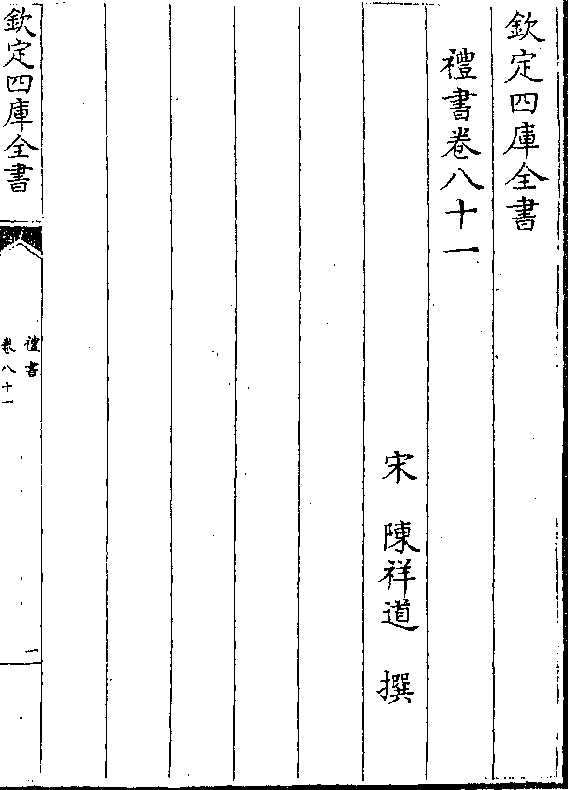 欽定四庫全書
禮書卷八十一
宋 陳祥道 撰
欽定四庫全書
禮書
卷八十一
一